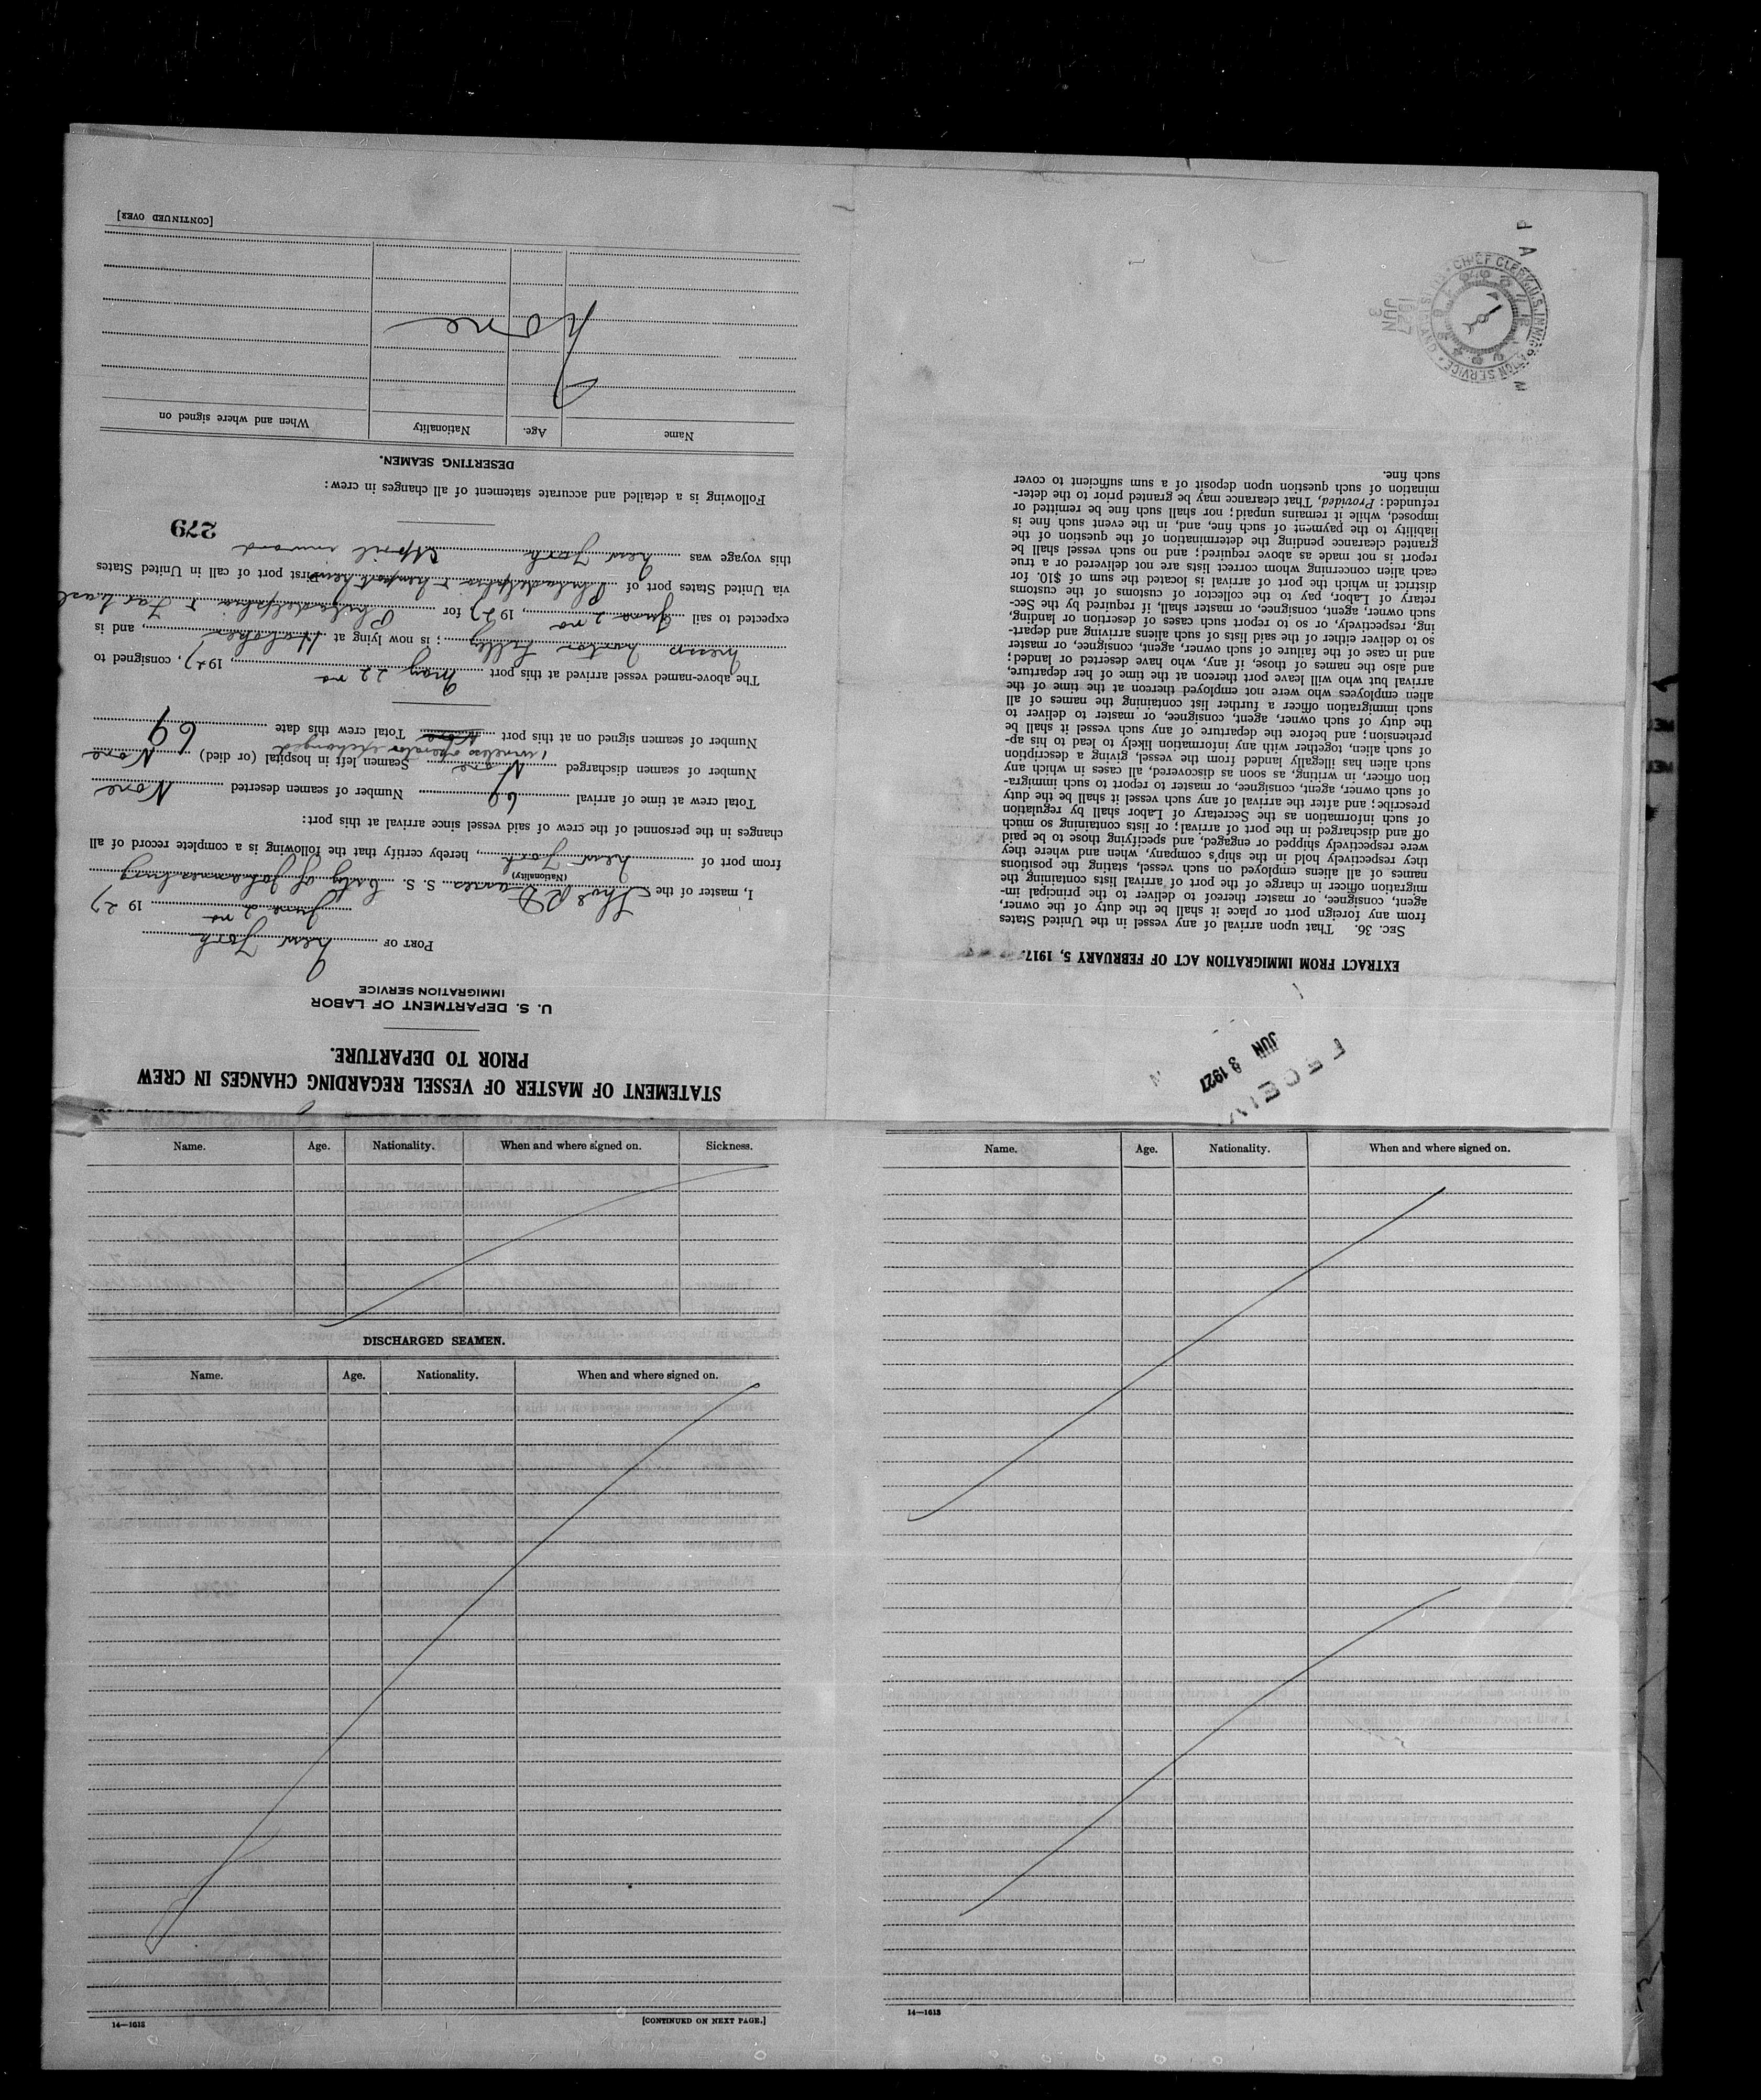 STATEMENT OF MASTER OF VESSEL REGARDING CHANGES IN CREW
PRIOR TO DEPARTURE.
U. S. DEPARTMENT OF LABOR
IMMIGRATION SERVICE
PORT OF New York
June 2nd 1927
I, master of the (Nationality) S. S. City of Johannesburg
from port of New York, hereby certify that the following is a complete record of all
changes in the personnel of the crew of said vessel since arrival at this port:
Total crew at time of arrival 69 Number of seamen deserted None
Number of seamen discharged None Seamen left in hospital (or died) None
1 wireless operator exchanged
Number of seamen signed on at this port None Total crew this date 69
The above-named vessel arrived at this port May 22nd, 1927, consigned to
Messrs Norton Lilly; is now lying at Hoboken, and is
expected to sail June 2nd, 1927 for Philadelphia & Far East
via United States port of Philadelphia & Newport News First port of call in United States
this voyage was New York April inward
279
Following is a detailed and accurate statement of all changes in crew:
DESERTING SEAMEN.
Name Age. Nationality When and where signed on
None
[CONTINUED OVER]
RECEIV
JUN 3 1927
EXTRACT FROM IMMIGRATION ACT OF FEBRUARY 5, 1917.
SEC. 36. That upon arrival of any vessel in the United States
from any foreign port or place it shall be the duty of the owner,
agent, consignee, or master thereof to deliver to the principal im-
migration officer in charge of the port of arrival lists containing the
names of all aliens employed on such vessel, stating the positions
they respectively hold in the ship's company, when and where they
were respectively shipped or engaged, and specifying those to be paid
off and discharged in the port of arrival; or lists containing so much
of such information as the Secretary of Labor shall by regulation
prescribe; and after the arrival of any such vessel it shall be the duty
of such owner, agent, consignee, or master to report to such immigra-
tion officer, in writing, as soon as discovered, all cases in which any
such alien has illegally landed from the vessel, giving a description
of such alien, together with any information likely to lead to his ap-
prehension; and before the departure of any such vessel it shall be
the duty of such owner, agent, consignee, or master to deliver to
such immigration officer a further list containing the names of all
alien employees who were not employed thereon at the time of the
arrival but who will leave port thereon at the time of her departure,
and also the names of those, if any, who have deserted or landed;
and in case of the failure of such owner, agent, consignee, or master
so to deliver either of the said lists of such aliens arriving and depart-
ing, respectively, or so to report such cases of desertion or landing,
such owner, agent, consignee, or master, shall, if required by the Sec-
retary of Labor, pay to the collector of customs of the customs
district in which the port of arrival is located the sum of $10. for
each alien concerning whom correct lists are not delivered or a true
report is not made as above required; and no such vessel shall be
granted clearance pending the determination of the question of the
liability to the payment of such fine, and, in the event such fine is
imposed, while it remains unpaid; nor shall such fine be remitted or
refunded: Provided, That clearance may be granted prior to the deter-
mination of such question upon deposit of a sum sufficient to cover
such fine.
CHIEF CLERK U.S. IMMIGRATION SERVICE
JUN 3
1927
Name. Age. Nationality. When and where signed on. Sickness.
DISCHARGED SEAMEN.
Name. Age. Nationality. When and where signed on.
14—1618 [CONTINUED ON NEXT PAGE.]
Name. Age. Nationality. When and where signed on.
14—1618